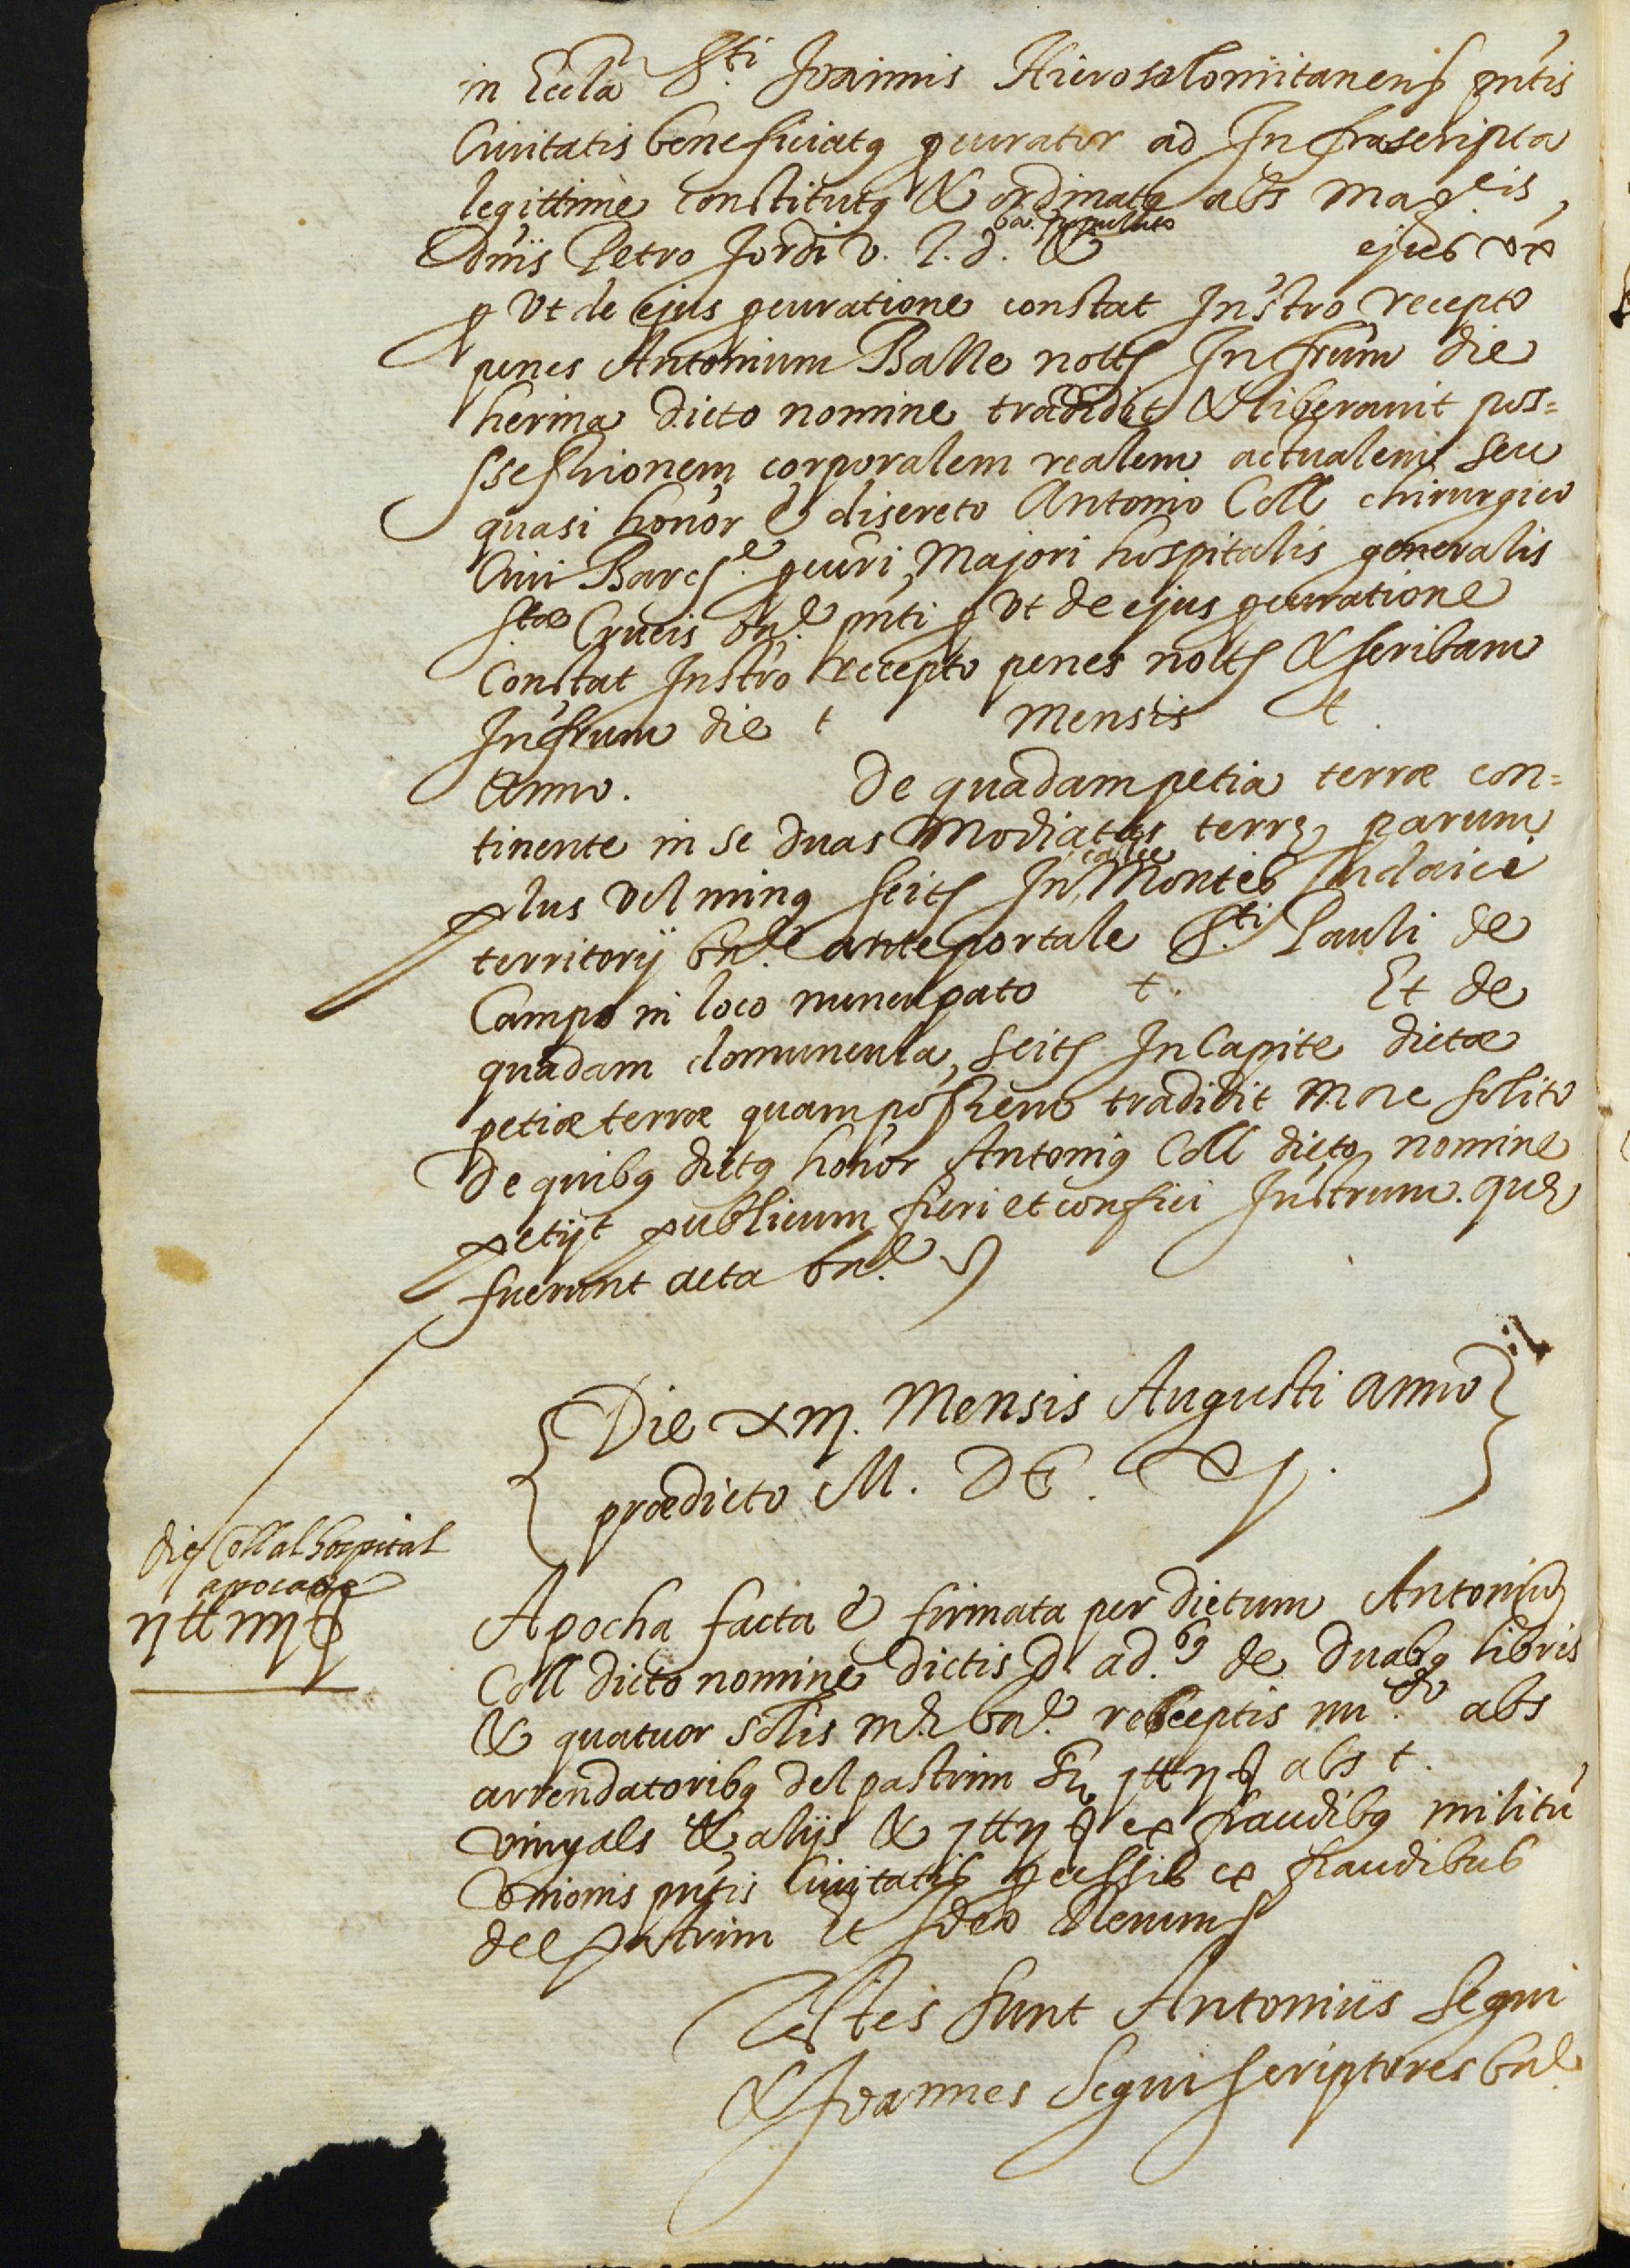 in Eccla S.ti Joannis Hierosolomitanens pntis
Civitatis beneficiatus procurator ad Infrascripta
legittime constitutus & ordinatus abs Mag.cis
dnis Petro Jordi V. J. d. & ejus ux
prout de ejus procuratione constat Instro recepto
penes Antonium Batlle notm Infrum die
herina dicto nomine tradidit & liberavit pos=
ssessionem corporalem realem actualem seu
quasi honor & discreto Antonio Coll chirurgico
Civi Barcñe procuri Majori hospitalis generalis
Stæ Crucis bne pnti prout de ejus procuratione
Constat Instro recepto penes notm & scribam
Infrum die t mensis t
Anno. De quadam petia terræ con=
tinente in se duas Modiatas terre parum
plus vel minus scita In Montibus Judaici
territorij bne ante portale S.ti Pauli de
Campo in loco nuncupato t. Et de
quadam domuncula, scita In Capite dictæ
petiæ terræ quam possessem tradidit more solito
De quibus dictus honor Antonius Coll dicto nomine
petijt publicum fieri et confici Instrum. que
fuerunt acta bne
Die xiij. Mensis Augusti anno
prædicto M. DC.
Coll al hospital
apoca de
ij ℔ iiij ß
Apocha facta & firmata per dictum Antonium
Coll dicto nomine dictis d. ad.bus de duabus libris
& quatuor solis me bne receptis nu.do abs
arrendatoribus del pastrim j ℔ ij ß abs t.
vinyals & alijs & j ℔ ij ß ex fraudibus militu
Unionis pntis Civitatis ex fraudibus
del Pastrim Et Ideo Renuns
Testes sunt Antonius Segui
& Joannes Segui scriptores bne